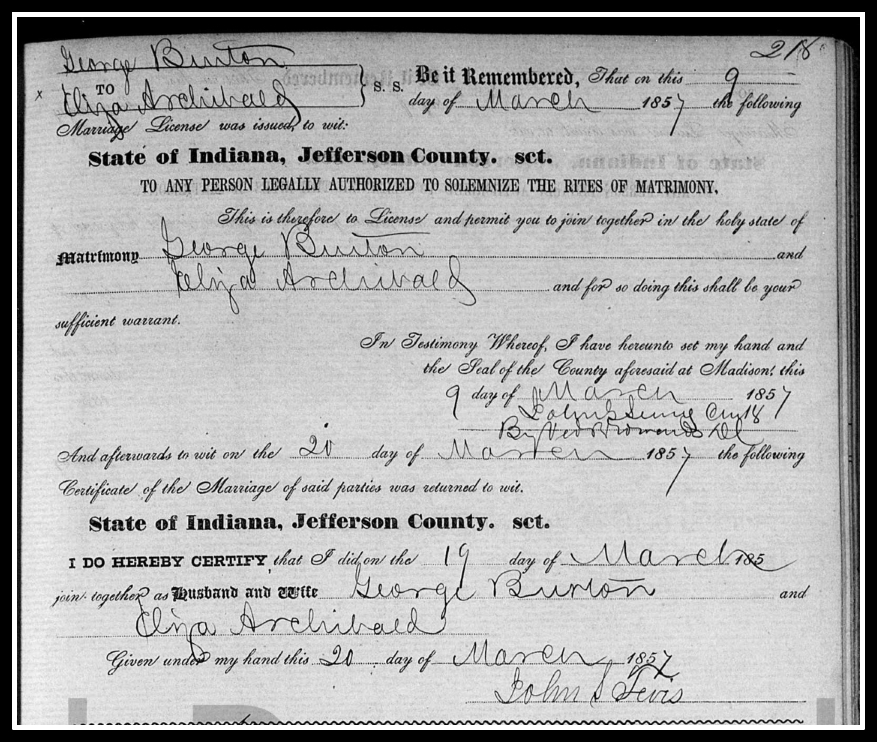 218
George Burton
TO
Eliza Archibald
} S. S. Be it Remembered, That on this 9
day of March 1857 the following
Marriage License was issued, to wit:
State of Indiana, Jefferson County. sct.
TO ANY PERSON LEGALLY AUTHORIZED TO SOLEMNIZE THE RITES OF MATRIMONY,
This is therefore to License and permit you to join together in the holy state of
Matrimony George Burton and
Eliza Archibald and for so doing this shall be your
sufficient warrant.
In Testimony Whereof, I have hereunto set my hand and
the Seal of the County aforesaid at Madison, this
9 day of March 1857
John
By
And afterwards to wit on the 20 day of March 1857 the following
Certificate of the Marriage of said parties was returned to wit.
State of Indiana, Jefferson County. sct.
I DO HEREBY CERTIFY, that I did on the 19 day of March 185
join together as Husband and Wife George Burton and
Eliza Archibald
Given under my hand this 20 day of March 1857
John S Tevis